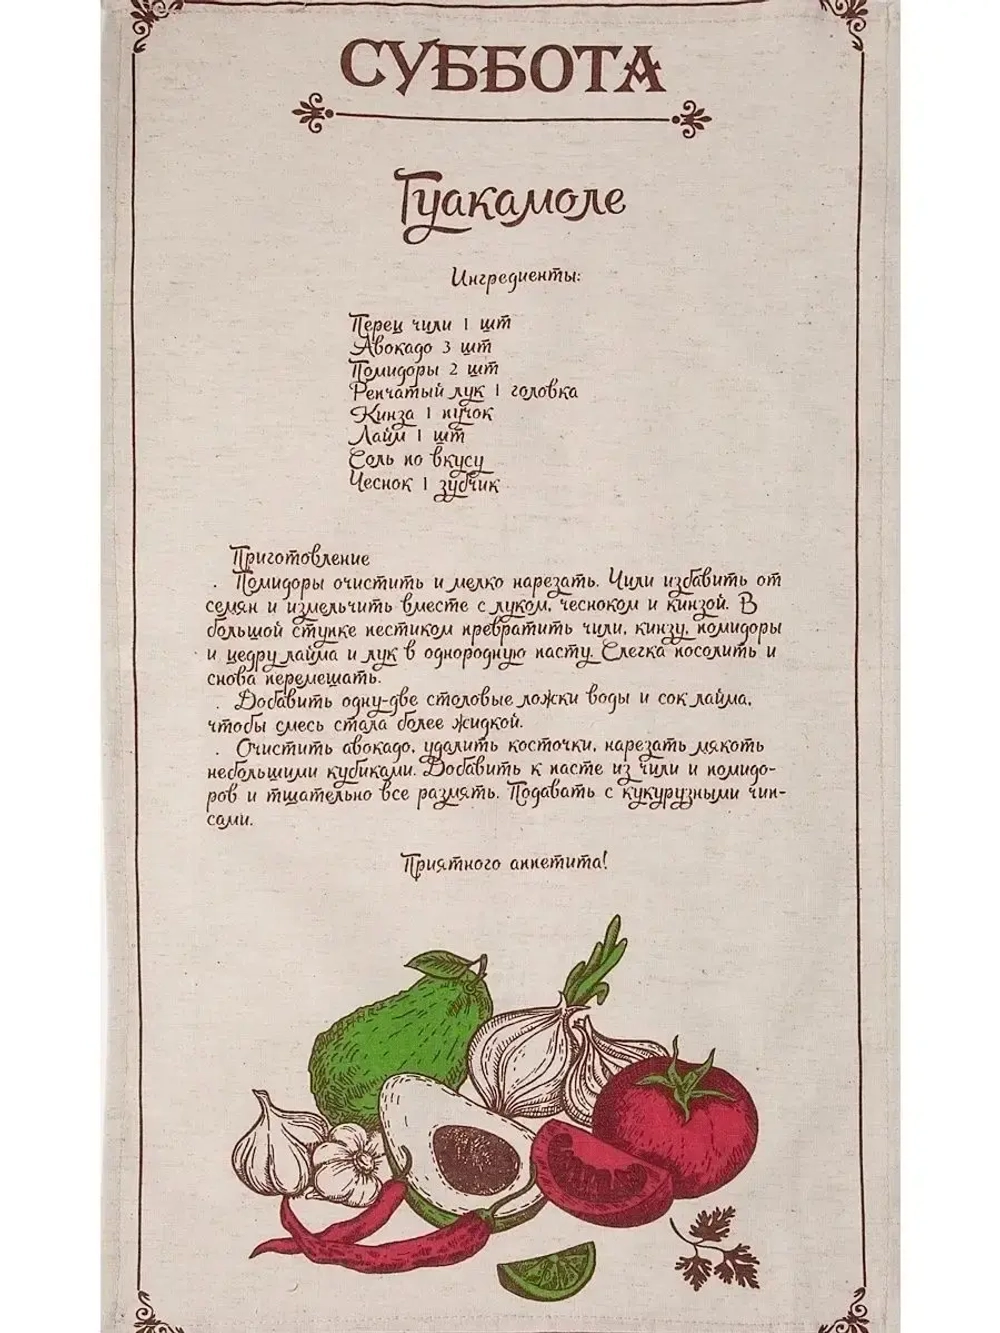 СУББОТА
Гуакамоле
Ингредиенты:
Перец чили 1 шт
Авокадо 3 шт
Помидоры 2 шт
Репчатый лук 1 головка
Кинза 1 пучок
Лайм 1 шт
Соль по вкусу
Чеснок 1 зубчик
Приготовление
. Помидоры очистить и мелко нарезать. Чили избавить от
семян и измельчить вместе с луком, чесноком и кинзой. В
большой ступке пестиком превратить чили, кинзу, помидоры
и цедру лайма и лук в однородную пасту. Слегка посолить и
снова перемешать.
. Добавить одну-две столовые ложки воды и сок лайма,
чтобы смесь стала более жидкой.
. Очистить авокадо, удалить косточки, нарезать мякоть
небольшими кубиками. Добавить к пасте из чили и помидо-
ров и тщательно все размять. Подавать с кукурузными чип-
сами.
Приятного аппетита!